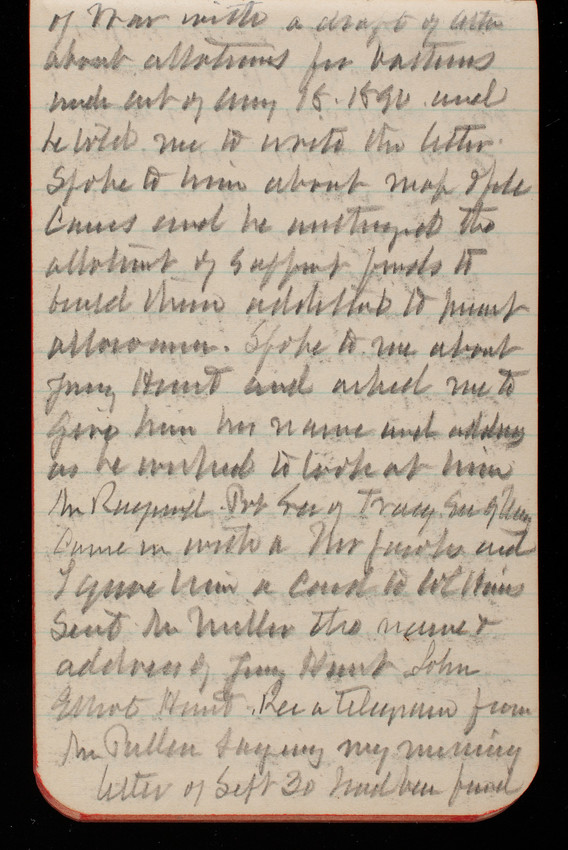 of War with a draft of letter
about allotments for batteries
under act of Aug 18. 1890 and
he told me to write the letter.
Spoke to him about map
Cases and he the
allotment of Support funds to
build them additional to
allowance. Spoke to me about
Hunt and asked me to
give him his name and address
as he wished to look at him
Mr Pvt Sec of Tracy Sec of Navy
Came in with a Mr Jacobs and
I gave him a Card to
Sent Mr Miller the name &
address of Hunt John
Elliot Hunt. Rec a telegram from
Mr Pullen saying my missing
letter of Sept 30 had been found